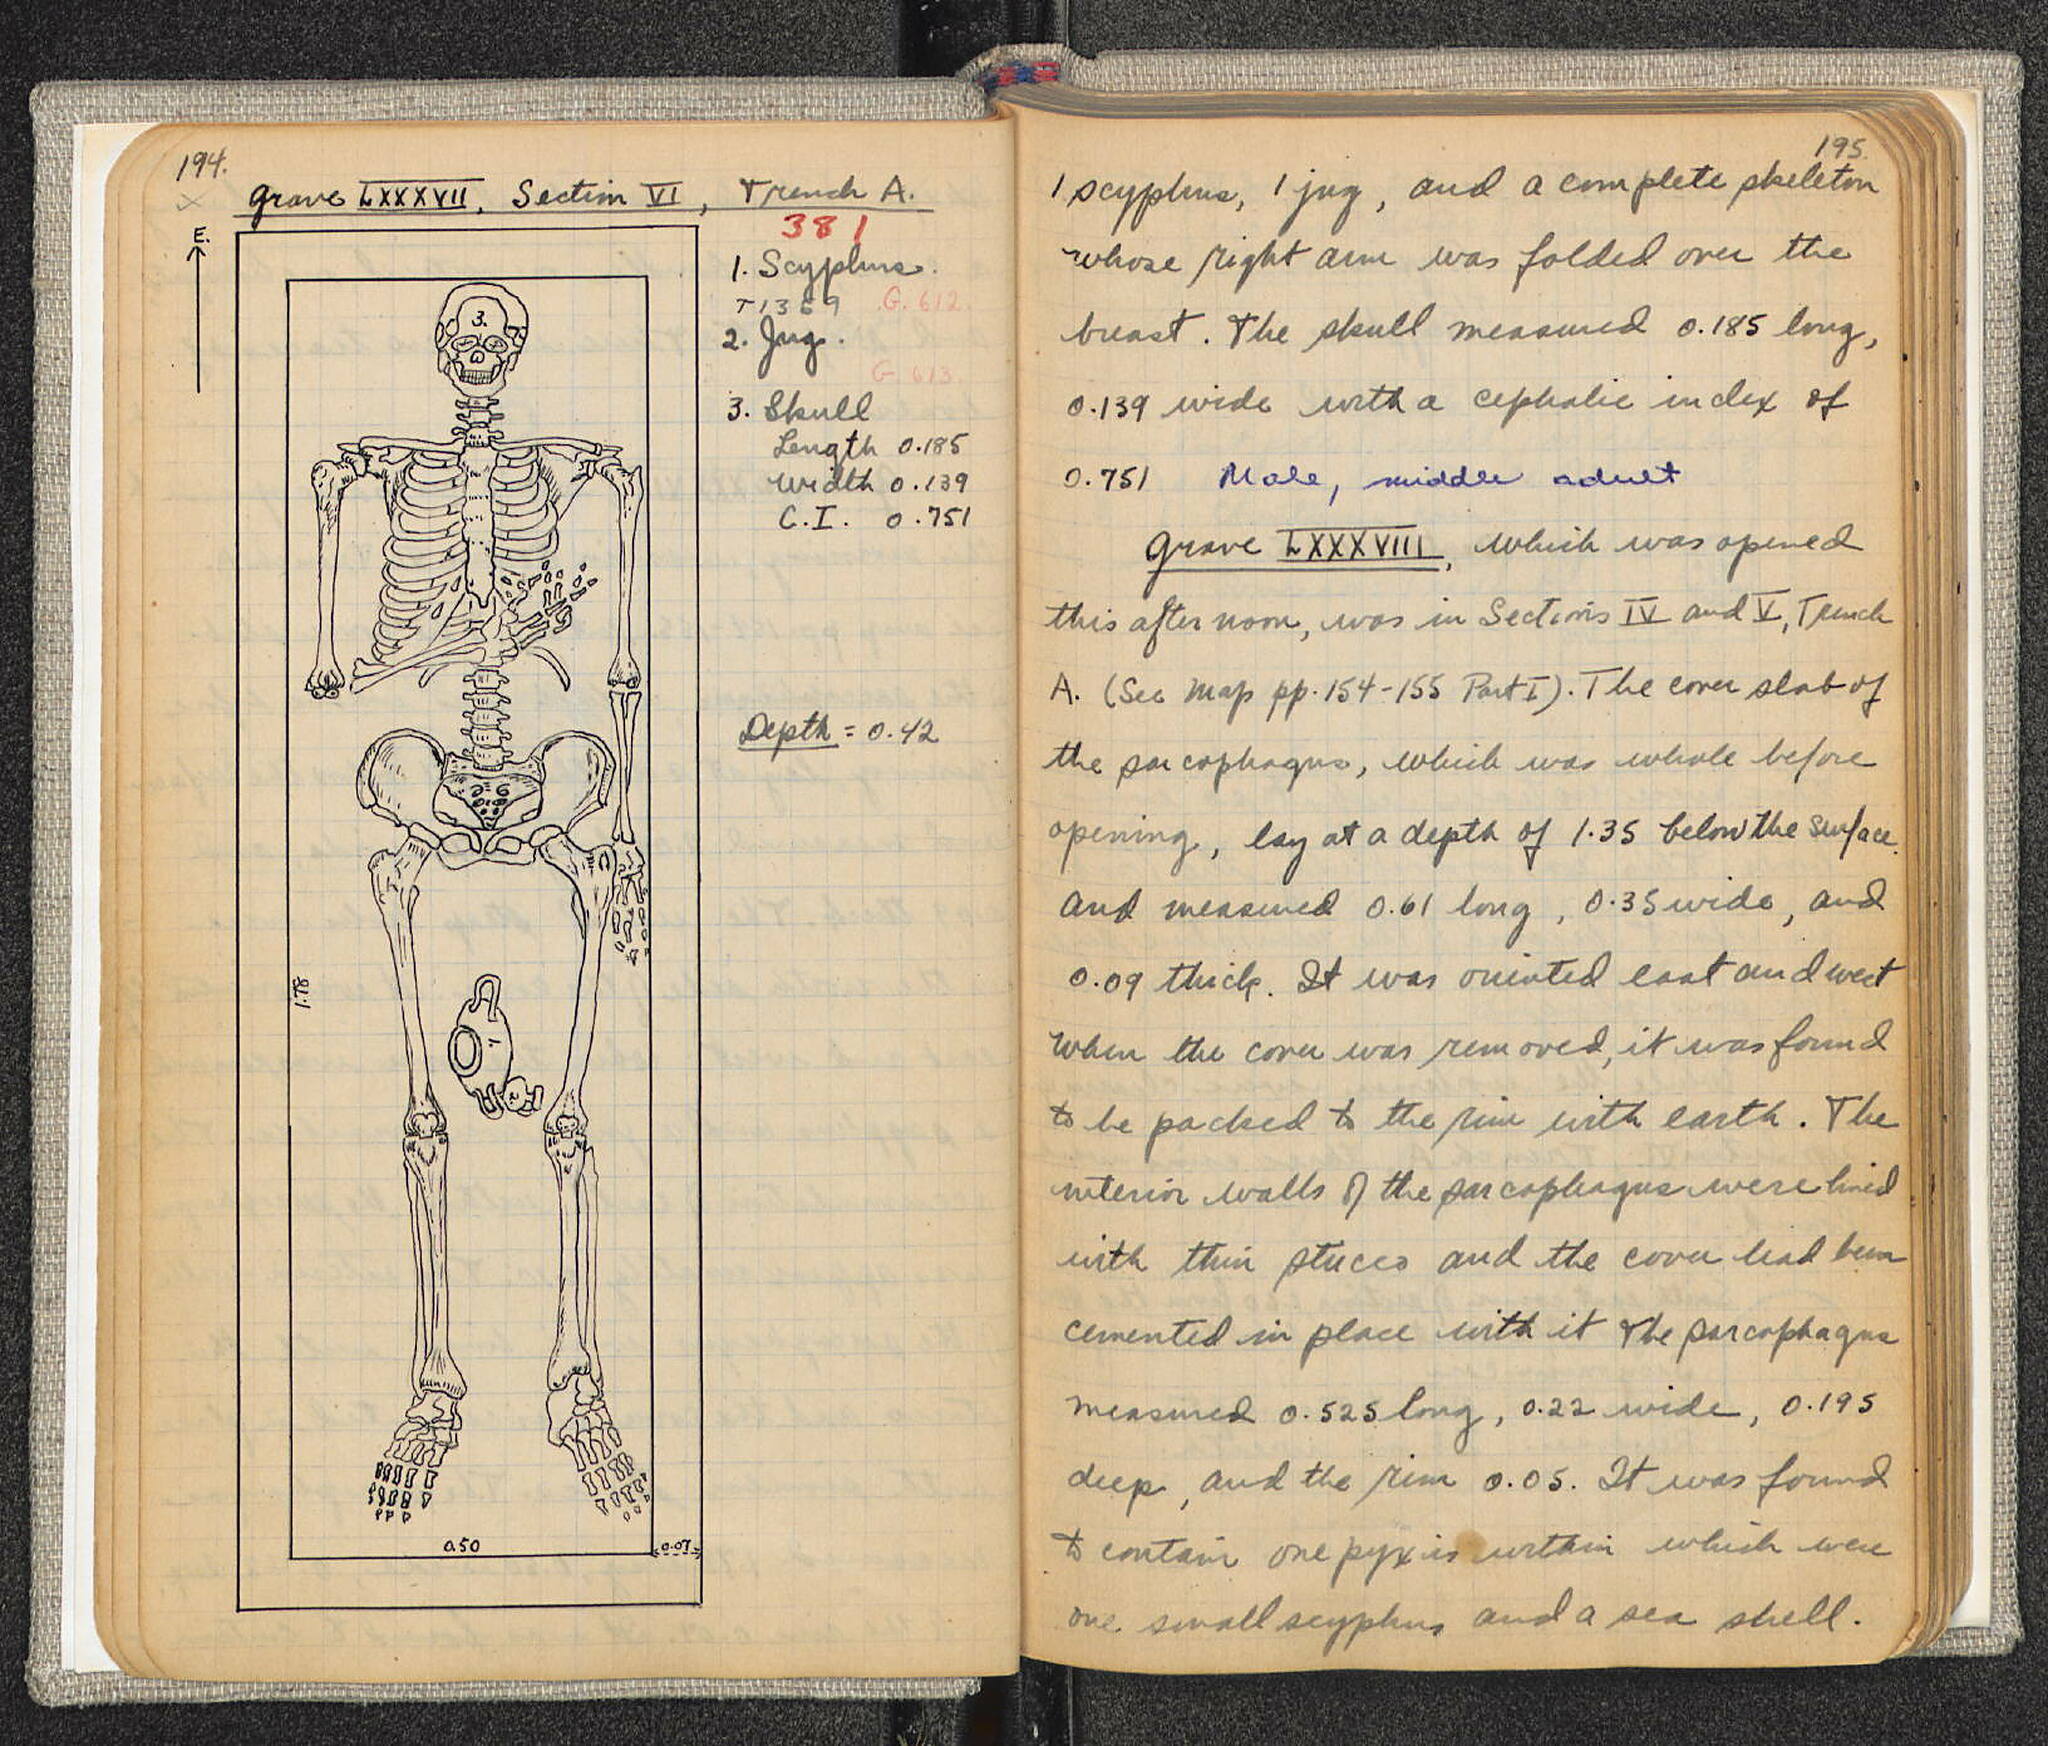 194.
Grave LXXXVII, Section VI, Trench A.
381
E.
1. Scyphus.
T1369 G. 612.
2. Jug.
G. 613.
3. Skull
Length 0.185
Width 0.139
C.I. 0.751
Depth = 0.42
3.
1.78
1.
2.
0.50
0.07
195.
1 scyphus, 1 jug, and a complete skeleton
whose right arm was folded over the
breast. The skull measured 0.185 long,
0.139 wide with a cephalic index of
0.751 Male, middle adult
Grave LXXXVIII, which was opened
this afternoon, was in Sections IV and V, Trench
A. (See Map pp. 154-155 Part I). The cover slab of
the sarcophagus, which was whole before
opening, lay at a depth of 1.35 below the surface.
and measured 0.61 long, 0.35 wide, and
0.09 thick. It was oriented east and west
When the cover was removed, it was found
to be packed to the rim with earth. The
interior walls of the sarcophagus were lined
with thin stucco and the cover had been
cemented in place with it The sarcophagus
measured 0.525 long, 0.22 wide, 0.195
deep, and the rim 0.05. It was found
to contain one pyxis within which were
one small scyphus and a sea shell.